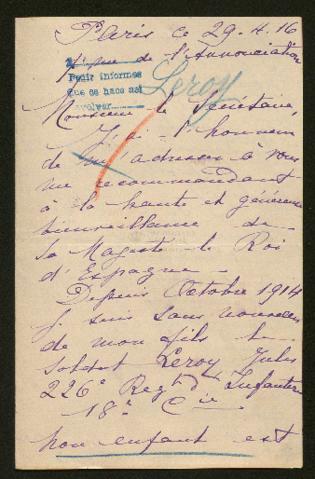 Paris ce 29.4.16
rue de l'Annonciation
Pedir informes
que se hace así
volver
Leroy
Monsieur le Secrétaire,
J'ai l'honneur
de m'adresser à vous
me recommandant
à la haute et généreuse
bienveillance de
Sa Majesté le Roi
d'Espagne.
Depuis Octobre 1914
je suis sans nouvelles
de mon fils le
soldat Leroy Jules
226e Regt d'Infanterie
18e Cie
mon enfant est